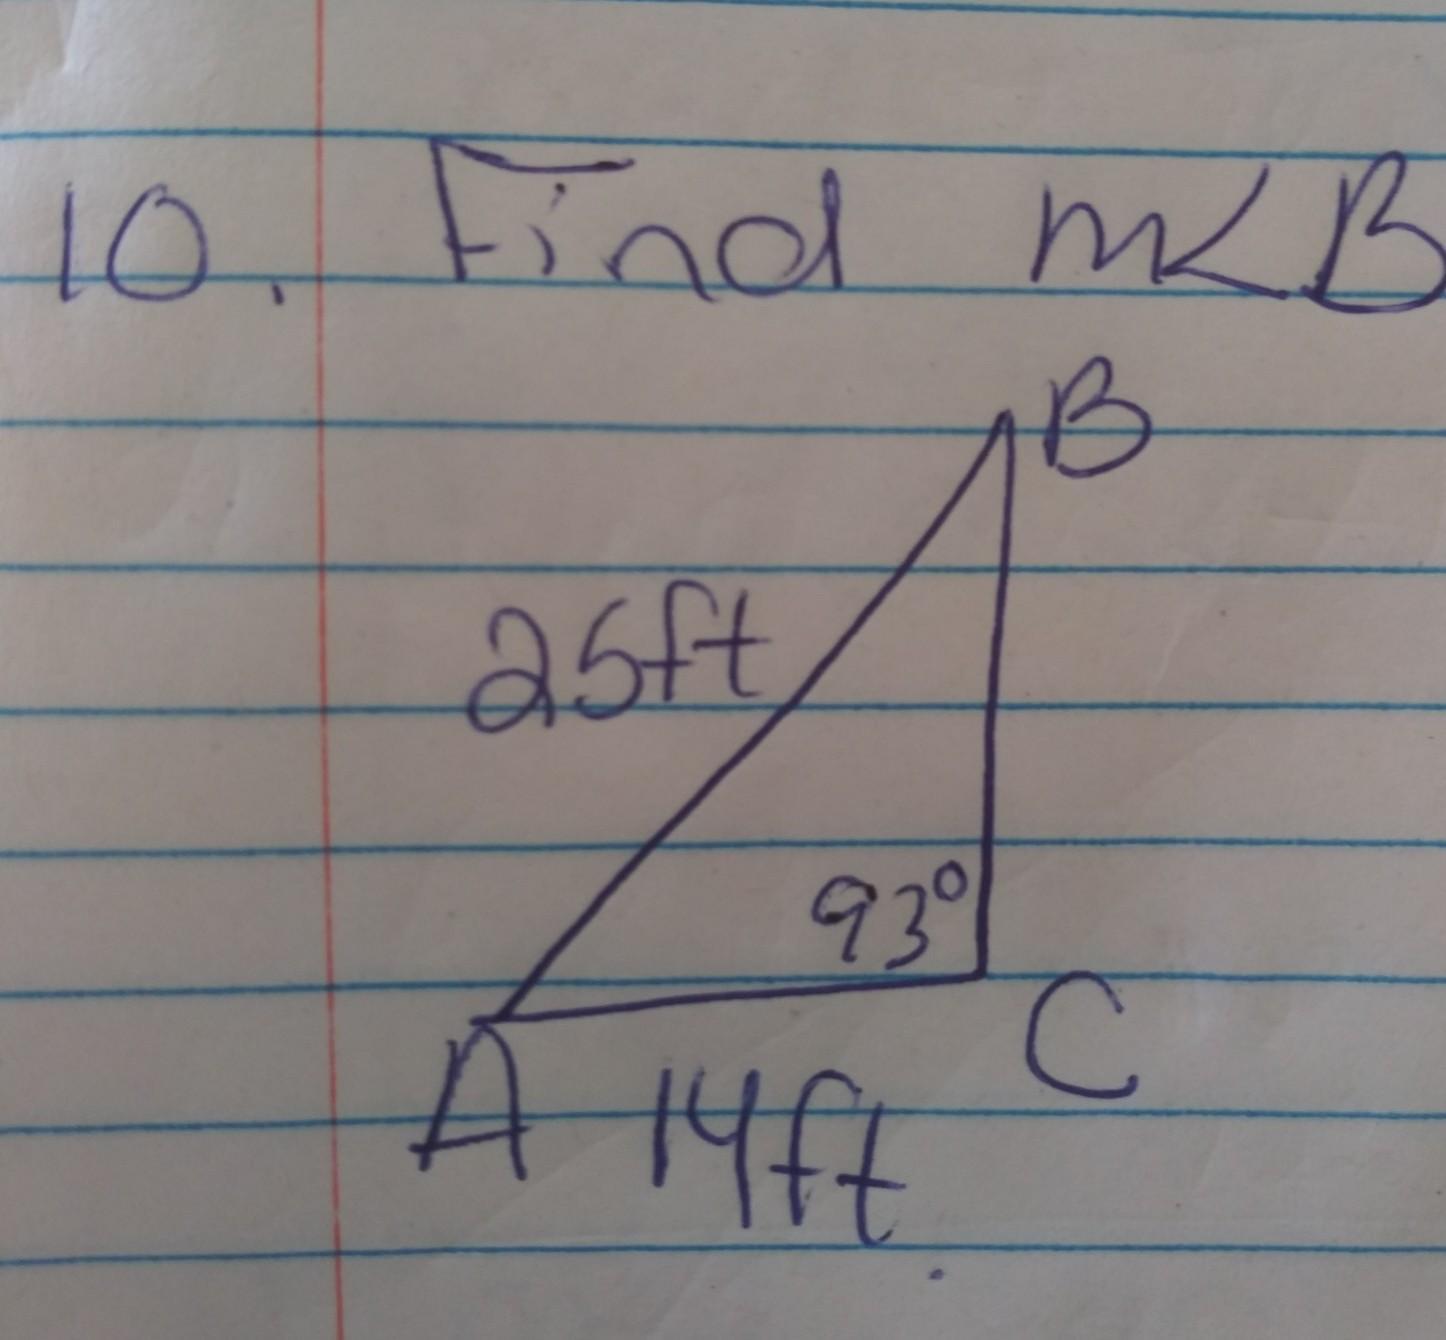 10. Find m<B
B
25ft
93°
A
C
14ft